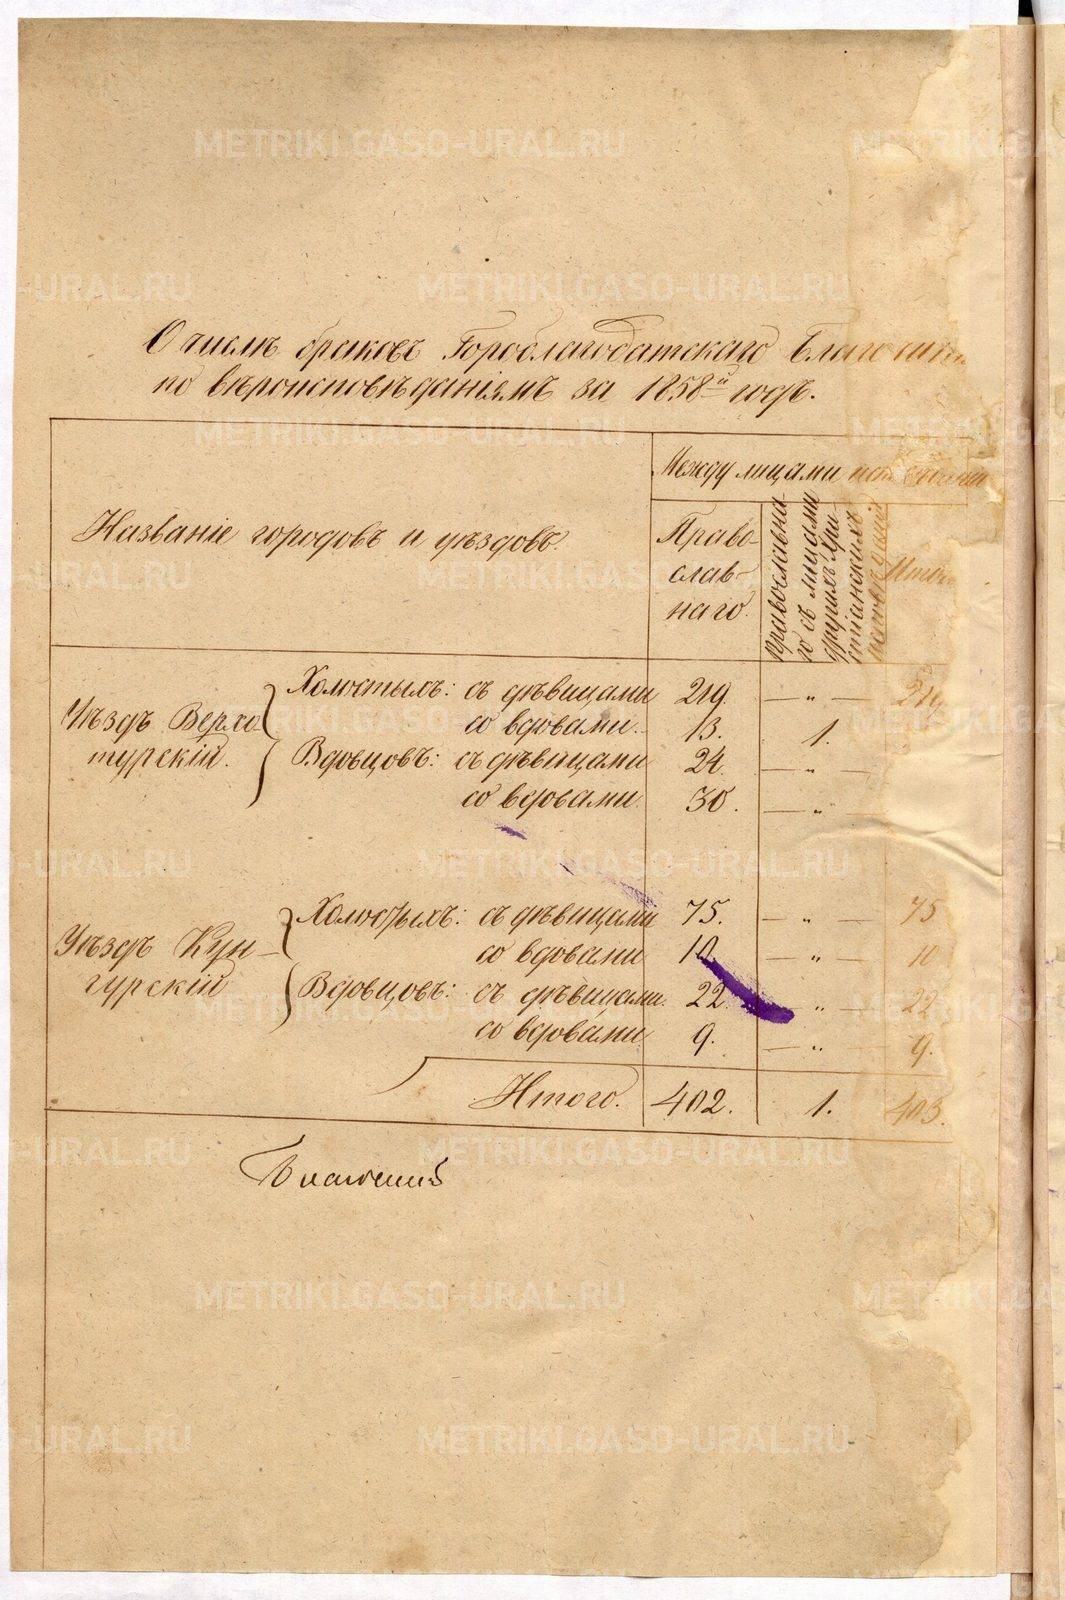 О числѣ браковъ Гороблагодатскаго Благочинія
по вѣроисповѣданіямъ за 1858й годъ.
Названіе городовъ и уѣздовъ.
Между лицами
Право-
слав-
наго.
православна-
го съ лицами
другихъ хри-
стіанскихъ
Итого
Уѣздъ Верхо-
турскій.
Холостыхъ: съ дѣвицами 219. — „ — 219
со вдовами. 13. 1.
Вдовцовъ: съ дѣвицами 24. — „ —
со вдовами. 30. — „
Уѣздъ Кун-
гурскій
Холостыхъ: съ дѣвицами 75. — „ — 75
со вдовами 10. — „ — 10
Вдовцовъ: съ дѣвицами. 22. „ — 22
со вдовами 9. — „ — 9.
Итого. 402. 1. 403.
METRIKI.GASO-URAL.RU